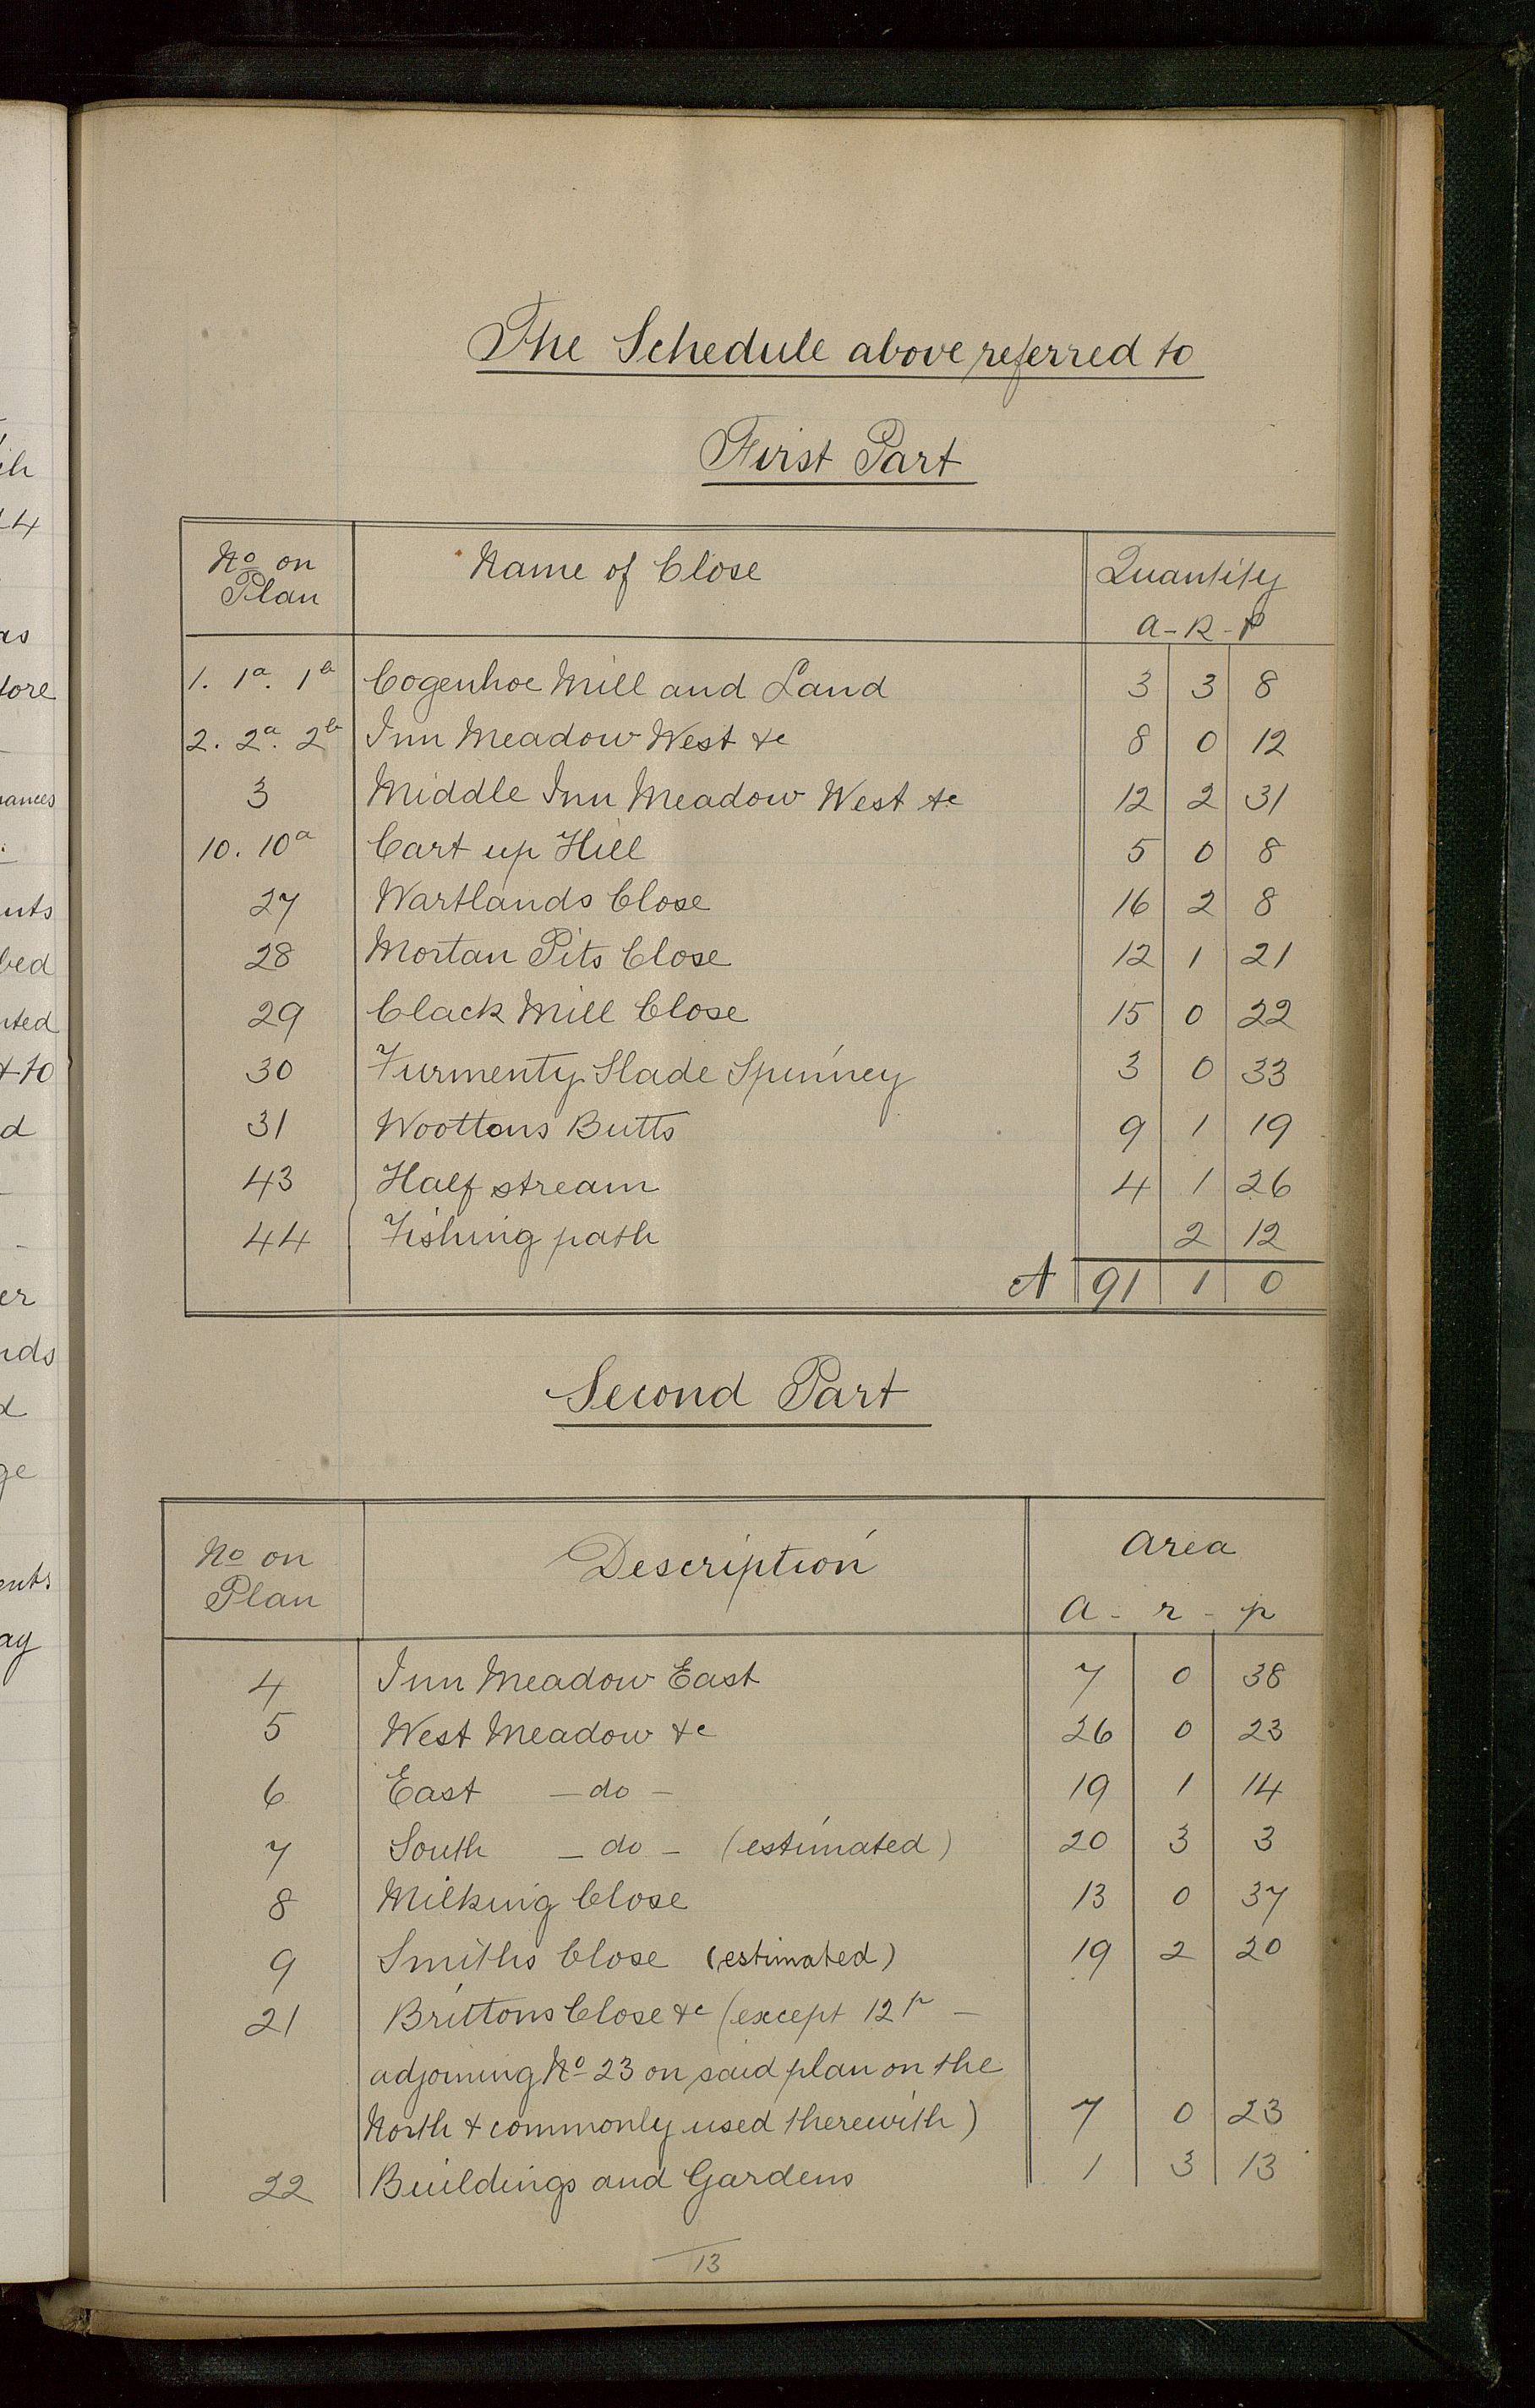 The Schedule above referred to
First Part
No on Plan Name of Close Quantity
A - R - P
1. 1a. 1b Cogenhoe Mill and Land 3 3 8
2. 2a. 2b Inn Meadow West &c 8 0 12
3 Middle Inn Meadow West &c 12 2 31
10. 10a Cart up Hill 5 0 8
27 Wartlands Close 16 2 8
28 Mortan Pits Close 12 1 21
29 Clack Mill Close 15 0 22
30 Furmenty Slade Spinney 3 0 33
31 Woottons Butts 9 1 19
43 Half stream 4 1 26
44 Fishing path 2 12
A 91 1 0
Second Part
No on Plan Description Area
a - r - p
4 Inn Meadow East 7 0 38
5 West Meadow &c 26 0 23
6 East - do - 19 1 14
7 South - do - (estimated) 20 3 3
8 Milking Close 13 0 37
9 Smiths Close (estimated) 19 2 20
21 Brittons Close &c (except 12 p -
adjoining No 23 on said plan on the
North & commonly used therewith) 7 0 23
22 Buildings and Gardens 1 3 13
13